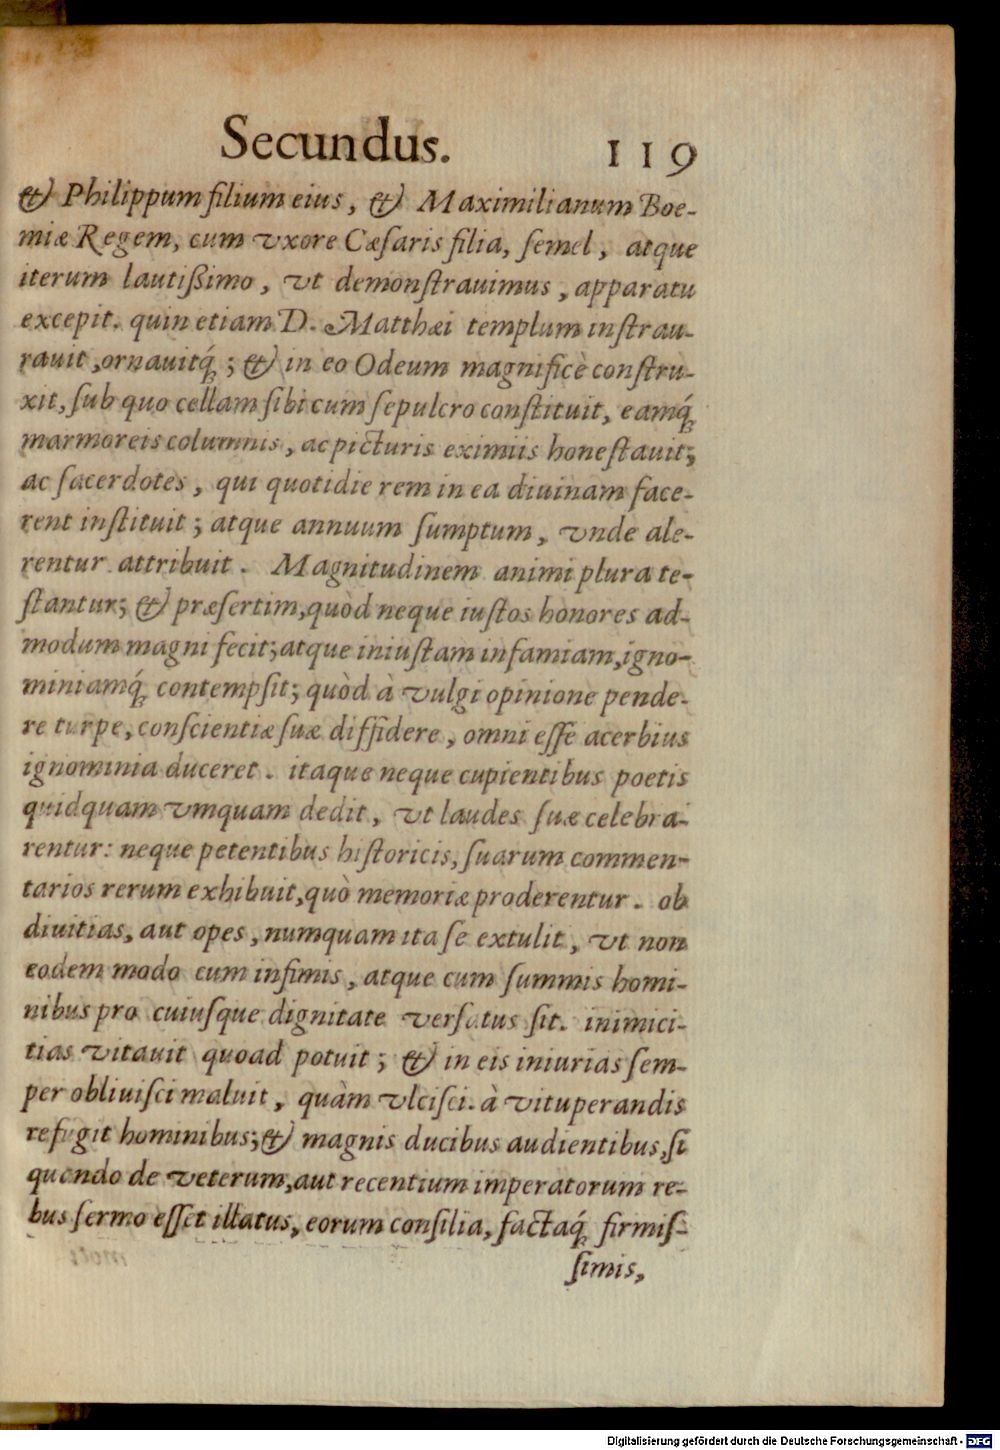 Secundus. 119
& Philippum filium eius, & Maximilianum Boe-
miæ Regem, cum vxore Cæſaris filia, ſemel, atque
iterum lautißimo, vt demonſtrauimus, apparatu
excepit. quin etiam D. Matthæi templum inſtrau-
rauit, ornauitq́; & in eo Odeum magnificè conſtru-
xit, ſub quo cellam ſibi cum ſepulcro conſtituit, eamq́
marmoreis columnis, ac picturis eximiis honeſtauit;
ac ſacerdotes, qui quotidie rem in ea diuinam face-
rent inſtituit; atque annuum ſumptum, vnde ale-
rentur attribuit. Magnitudinem animi plura te-
ſtantur; & præſertim, quòd neque iuſtos honores ad-
modum magni fecit; atque iniuſtam infamiam, igno-
miniamq́ contempſit; quòd à vulgi opinione pende-
re turpe, conſcientiæ ſuæ diffidere, omni eſſe acerbius
ignominia duceret. itaque neque cupientibus poetis
quidquam vmquam dedit, vt laudes ſuæ celebra-
rentur: neque petentibus hiſtoricis, ſuarum commen-
tarios rerum exhibuit, quò memoriæ proderentur. ob
diuitias, aut opes, numquam ita ſe extulit, vt non
eodem modo cum infimis, atque cum ſummis homi-
nibus pro cuiuſque dignitate verſatus ſit. inimici-
tias vitauit quoad potuit; & in eis iniurias ſem-
per obliuiſci maluit, quàm vlciſci. à vituperandis
refugit hominibus; & magnis ducibus audientibus, ſi
quando de veterum, aut recentium imperatorum re-
bus ſermo eſſet illatus, eorum conſilia, factaq́ firmiſ-
ſimis,
Digitalisierung gefördert durch die Deutsche Forschungsgemeinschaft - DFG